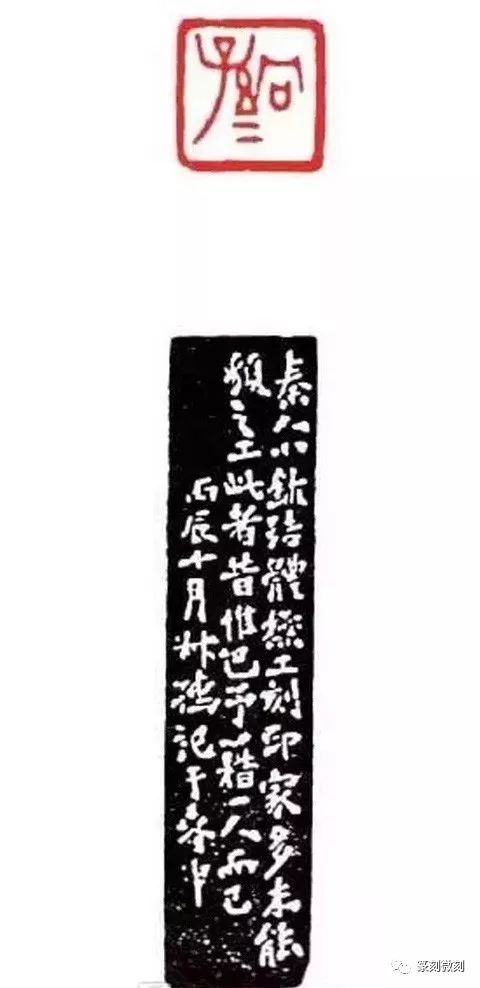 秦人小鉥結體極工刻印家多未能
之工此者昔惟巴予藉一人而已
丙辰十月叔孺記于春申
篆刻微刻